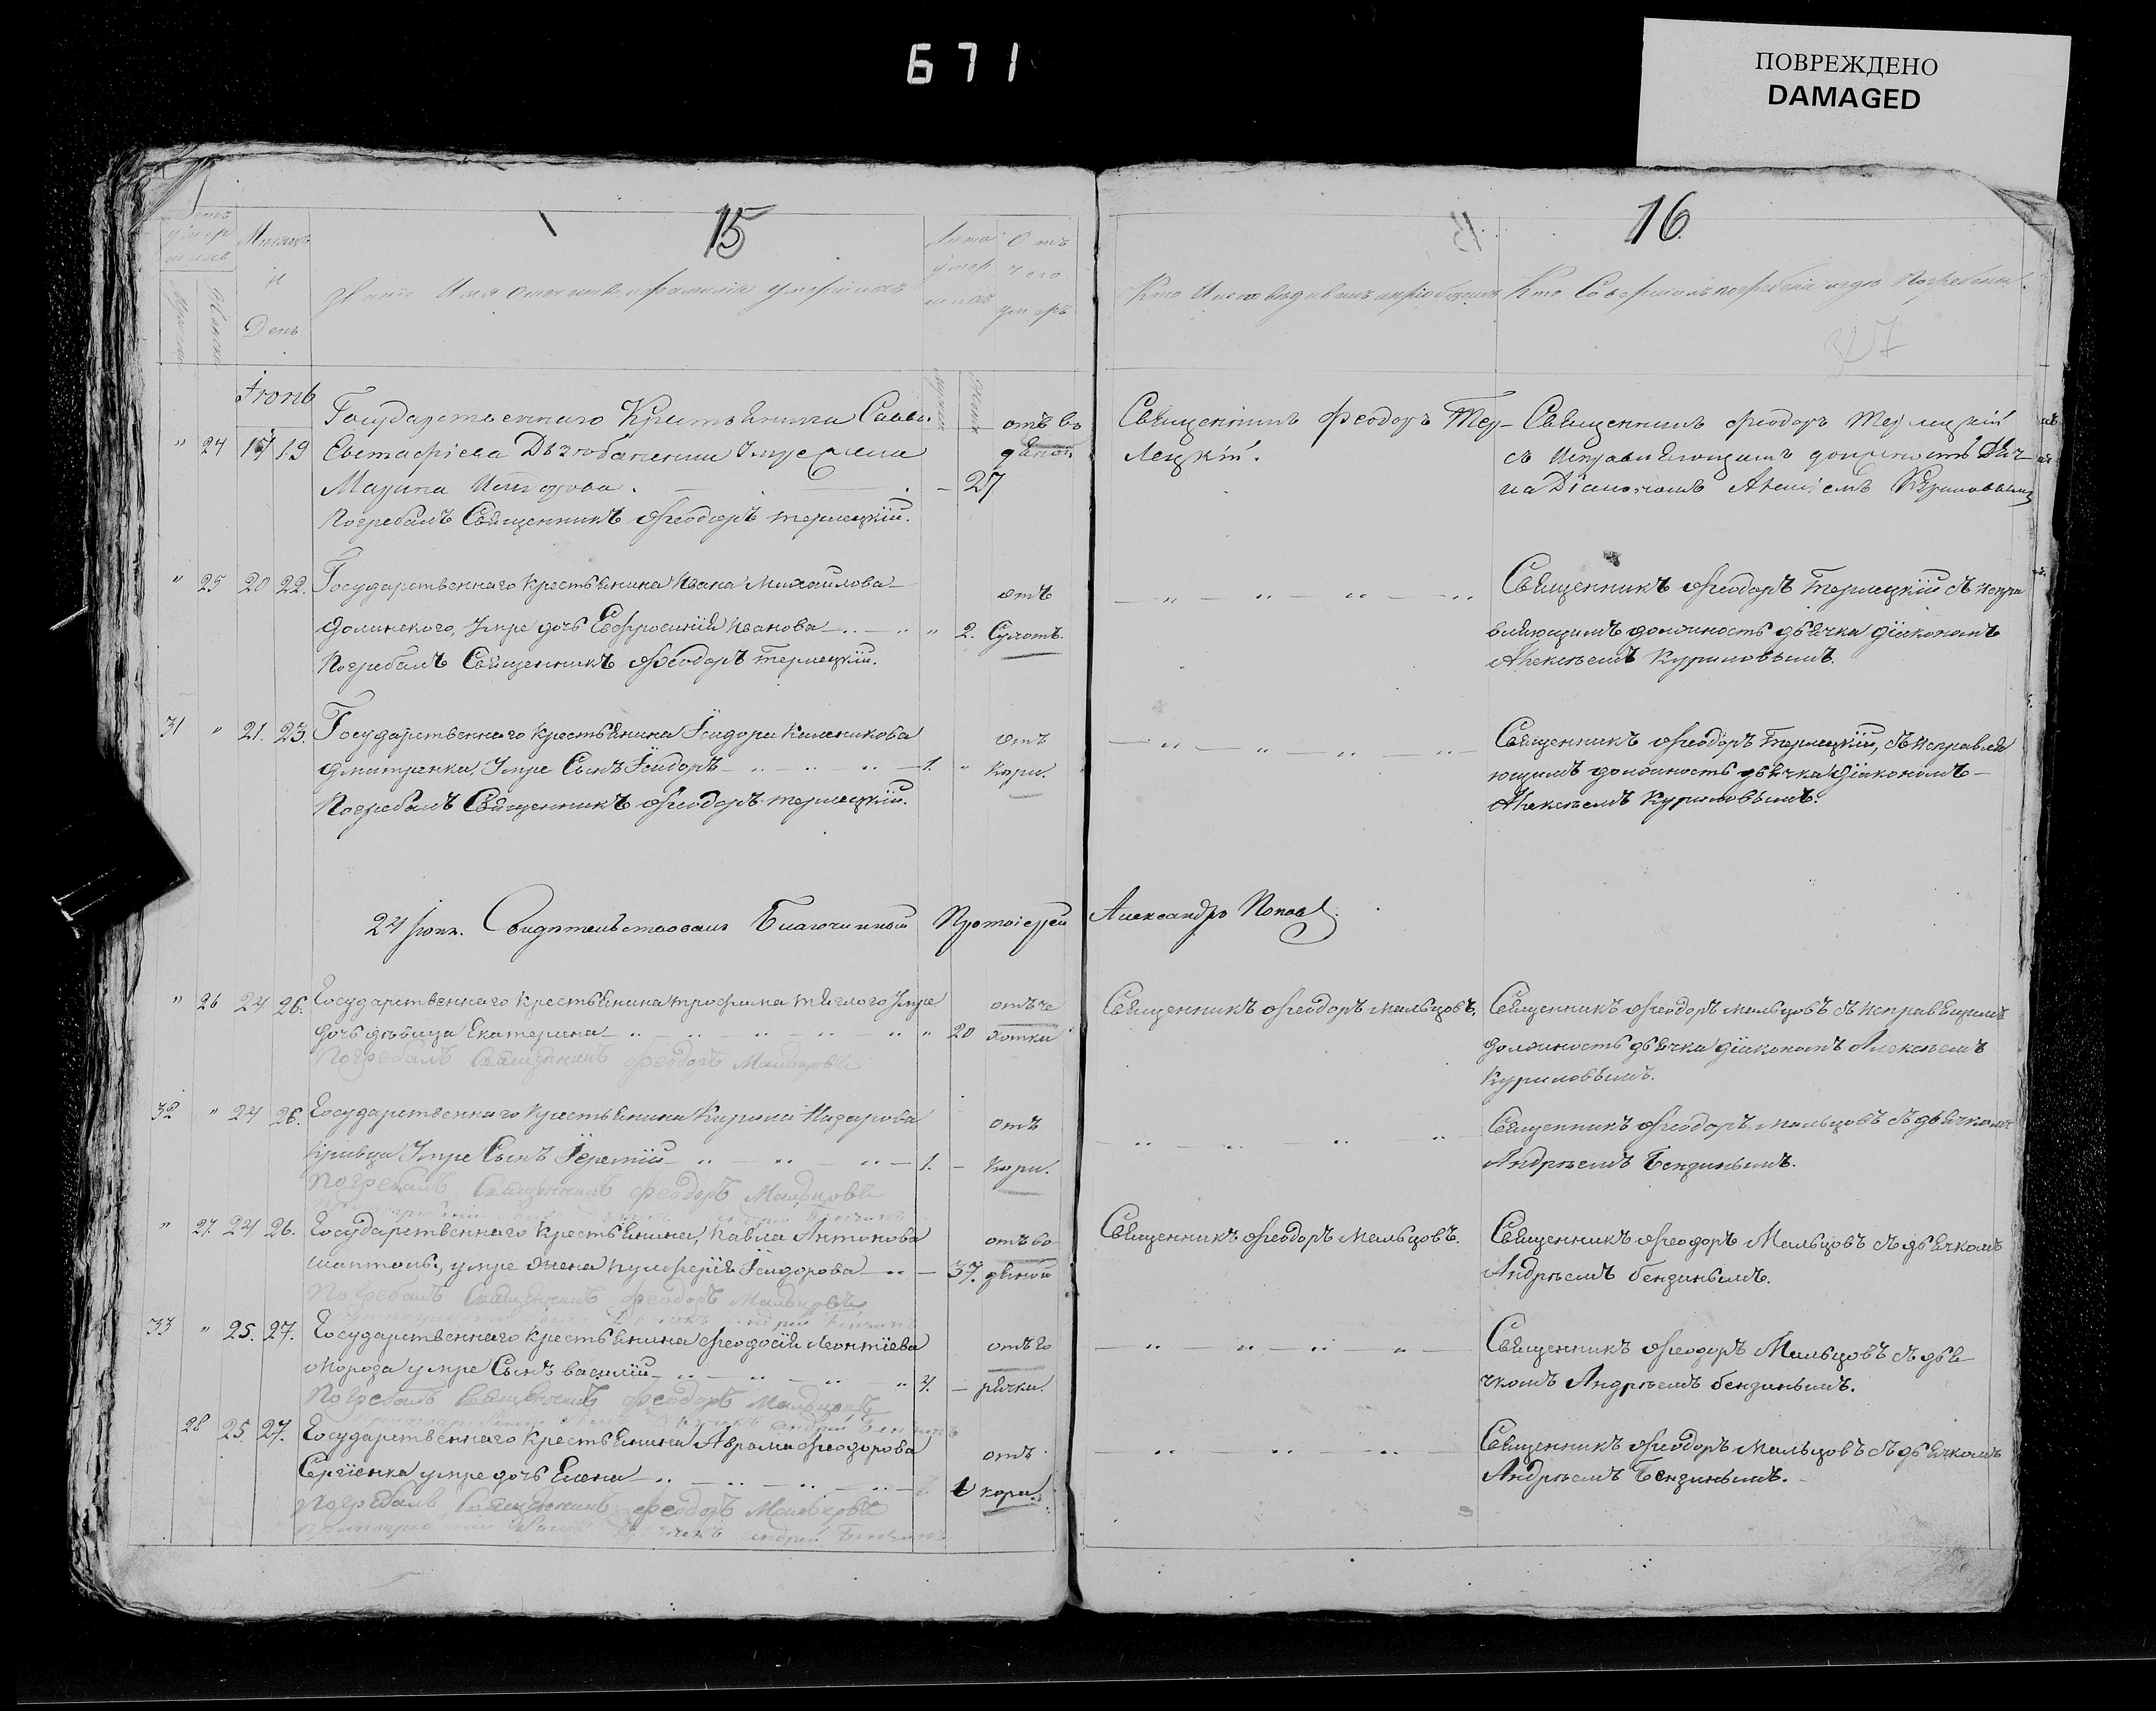 671
ПОВРЕЖДЕНО
DAMAGED
15
16
Мѣсяцъ
и
День
Званіе Имя Отечество и фамилія умершихъ
Лѣта
умер
шихъ
Отъ
чего
умеръ
Кто Исповѣдывалъ и пріобщалъ
Кто Совершалъ погребеніе и гдѣ погребены
Іюнь
Государственнаго Крестьянина Саввы
отъ во
" 24 17 19
Евстафіева Дзюбаненки Умре жена
дяной
Марина Исидорова. — 27
Погребалъ Священникъ Ѳеодоръ Терлецкій.
Священникъ Ѳеодоръ Тер-
лецкій.
Священникъ Ѳеодоръ Терлецкій
съ Исправляющимъ должность Дяч-
ка Діакономъ Алексѣемъ Куриловымъ
" 25 20 22. Государственнаго крестьянина Ивана Михайлова
отъ
Долинского, Умре дочь Евфросинія Иванова " 2. Сухотъ.
Погребалъ Священникъ Ѳеодоръ Терлецкій.
Священникъ Ѳеодоръ Терлецкій съ испра
вляющимъ должность дьячка діакономъ
Алексѣемъ Куриловымъ.
31 " 21. 23. Государственнаго крестьянина Ісидора Каленикова
отъ
Дмитренка, Умре Сынъ Ісидоръ 1. " Кори.
Погребалъ Священникъ Ѳеодоръ Терлецкій.
Священникъ Ѳеодоръ Терлецкій, съ исправля
ющимъ должность дьячка Діакономъ
Алексѣемъ Куриловымъ.
24 Іюня. Свидѣтельствовалъ Благочинный Протоіерей Александръ Поповъ
" 26 24 26. Государственнаго крестьянина Трофима Тяглого Умре
отъ че
дочь дѣвица Екатерина " 20 хотки
Погребалъ Священникъ Ѳеодоръ Мальцовъ
Священникъ Ѳеодоръ Мальцовъ.
Священникъ Ѳеодоръ Мальцовъ съ исправляющимъ
должность дьячка діакономъ Алексѣемъ
Куриловымъ.
32 " 24 26. Государственнаго Крестьянина Кирила Назарова
отъ
Кривца Умре Сынъ Іеремій 1. — Кори.
Погребалъ Священникъ Ѳеодоръ Мальцовъ
Священникъ Ѳеодоръ Мальцовъ съ дьячкомъ
Андреемъ Бензинымъ.
" 27. 24 26. Государственнаго Крестьянина, Павла Антонова
отъ во
умре жена Пулхерія Ісидорова — 37. дяной
Погребалъ Священникъ Ѳеодоръ Мальцовъ
Священникъ Ѳеодоръ Мальцовъ.
Священникъ Ѳеодоръ Мальцовъ съ дьячкомъ
Андреемъ Бензинымъ.
33 " 25. 27. Государственнаго Крестьянина Ѳеодосія Леонтіева
отъ го
Мороза умре Сынъ Василій 4. — рячки.
Погребалъ Священникъ Ѳеодоръ Мальцовъ
Дьячокъ Андрей Бензинъ
Священникъ Ѳеодоръ Мальцовъ съ дья-
чкомъ Андреемъ Бензинымъ.
28 25. 27. Государственнаго Крестьянина Аврама Ѳеодорова
отъ
Сергіенка умре дочь Елена 1 кори.
Погребалъ Священникъ Ѳеодоръ Мальцовъ
Дьячокъ Андрей Бензинъ
Священникъ Ѳеодоръ Мальцовъ съ дьячкомъ
Андреемъ Бензинымъ.